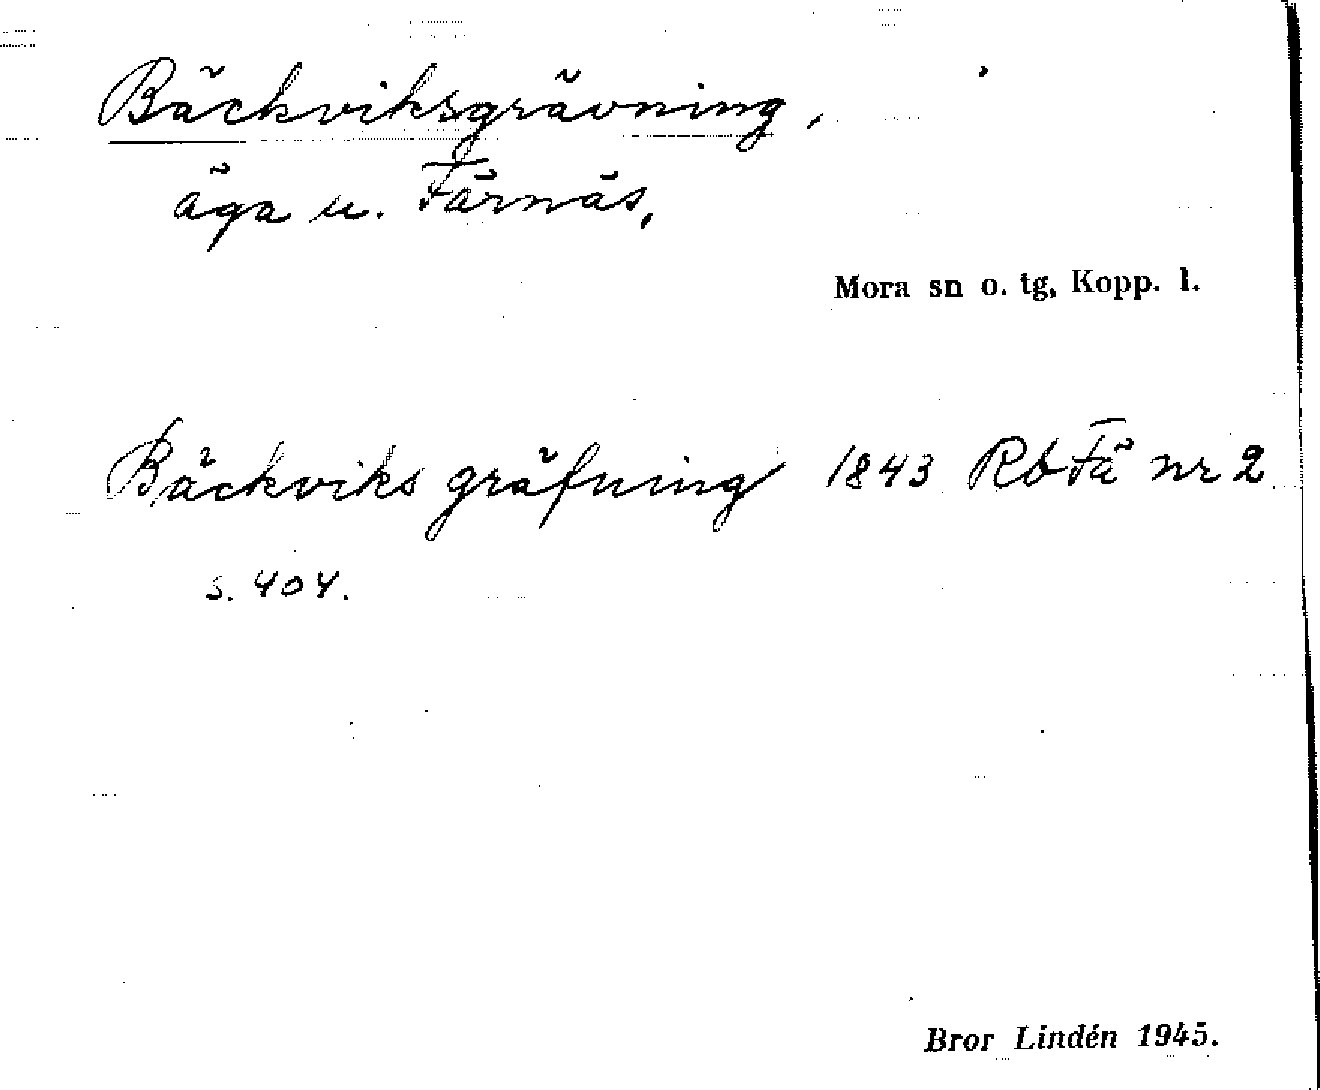 Bäckviksgrävning,
äga u. Färnäs,
Mora sn o. tg, Kopp. l.
Bäckviks gräfning 1843 Rb Fä nr 2
s. 404.
Bror Lindén 1945.